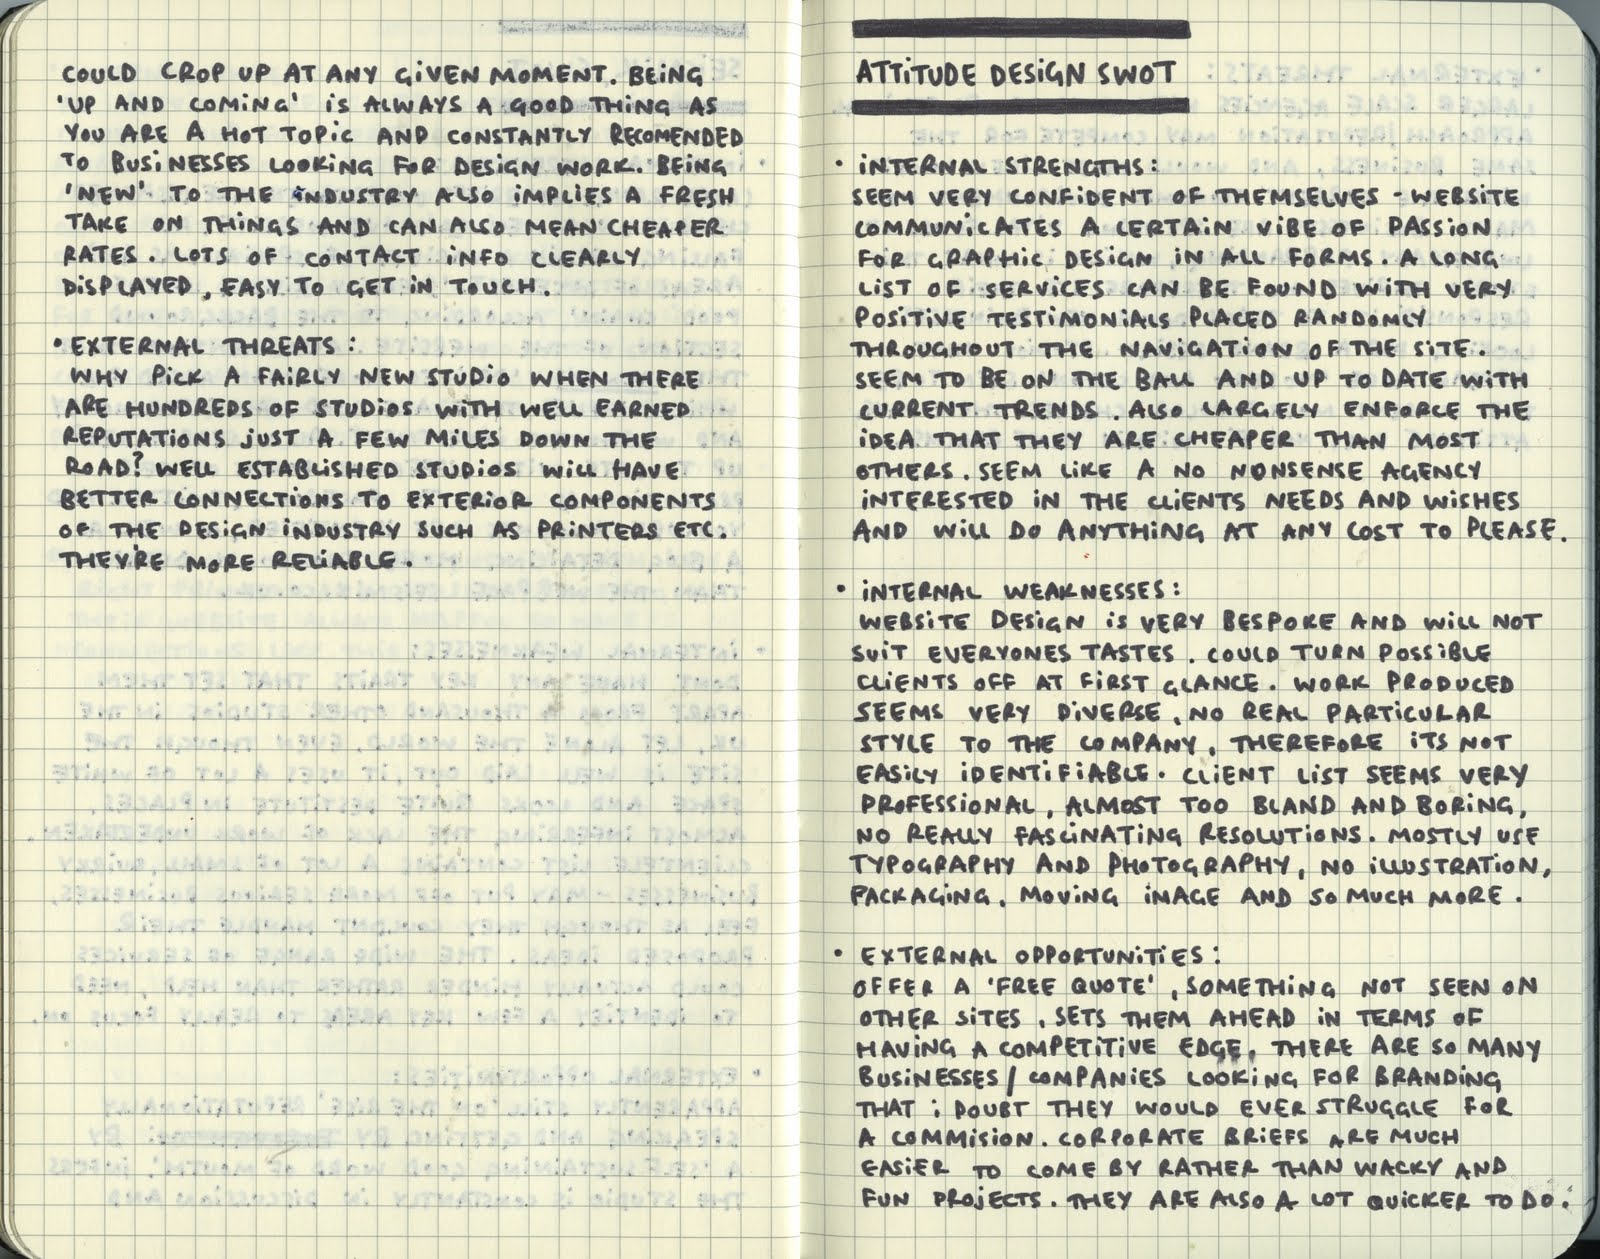 COULD CROP UP AT ANY GIVEN MOMENT. BEING
'UP AND COMING' IS ALWAYS A GOOD THING AS
YOU ARE A HOT TOPIC AND CONSTANTLY RECOMENDED
TO BUSINESSES LOOKING FOR DESIGN WORK. BEING
'NEW' TO THE INDUSTRY ALSO IMPLIES A FRESH
TAKE ON THINGS AND CAN ALSO MEAN CHEAPER
RATES. LOTS OF CONTACT INFO CLEARLY
DISPLAYED, EASY TO GET IN TOUCH.
• EXTERNAL THREATS:
WHY PICK A FAIRLY NEW STUDIO WHEN THERE
ARE HUNDREDS OF STUDIOS WITH WELL EARNED
REPUTATIONS JUST A FEW MILES DOWN THE
ROAD? WELL ESTABLISHED STUDIOS WILL HAVE
BETTER CONNECTIONS TO EXTERIOR COMPONENTS
OF THE DESIGN INDUSTRY SUCH AS PRINTERS ETC.
THEY'RE MORE RELIABLE.
ATTITUDE DESIGN SWOT
• INTERNAL STRENGTHS:
SEEM VERY CONFIDENT OF THEMSELVES - WEBSITE
COMMUNICATES A CERTAIN VIBE OF PASSION
FOR GRAPHIC DESIGN IN ALL FORMS. A LONG
LIST OF SERVICES CAN BE FOUND WITH VERY
POSITIVE TESTIMONIALS PLACED RANDOMLY
THROUGHOUT THE NAVIGATION OF THE SITE.
SEEM TO BE ON THE BALL AND UP TO DATE WITH
CURRENT TRENDS. ALSO LARGELY ENFORCE THE
IDEA THAT THEY ARE CHEAPER THAN MOST
OTHERS. SEEM LIKE A NO NONSENSE AGENCY
INTERESTED IN THE CLIENTS NEEDS AND WISHES
AND WILL DO ANYTHING AT ANY COST TO PLEASE.
• INTERNAL WEAKNESSES:
WEBSITE DESIGN IS VERY BESPOKE AND WILL NOT
SUIT EVERYONES TASTES. COULD TURN POSSIBLE
CLIENTS OFF AT FIRST GLANCE. WORK PRODUCED
SEEMS VERY DIVERSE, NO REAL PARTICULAR
STYLE TO THE COMPANY, THEREFORE ITS NOT
EASILY IDENTIFIABLE. CLIENT LIST SEEMS VERY
PROFESSIONAL, ALMOST TOO BLAND AND BORING,
NO REALLY FASCINATING RESOLUTIONS. MOSTLY USE
TYPOGRAPHY AND PHOTOGRAPHY, NO ILLUSTRATION,
PACKAGING, MOVING IMAGE AND SO MUCH MORE.
• EXTERNAL OPPORTUNITIES:
OFFER A 'FREE QUOTE', SOMETHING NOT SEEN ON
OTHER SITES, SETS THEM AHEAD IN TERMS OF
HAVING A COMPETITIVE EDGE. THERE ARE SO MANY
BUSINESSES/COMPANIES LOOKING FOR BRANDING
THAT I DOUBT THEY WOULD EVER STRUGGLE FOR
A COMMISION. CORPORATE BRIEFS ARE MUCH
EASIER TO COME BY RATHER THAN WACKY AND
FUN PROJECTS. THEY ARE ALSO A LOT QUICKER TO DO.